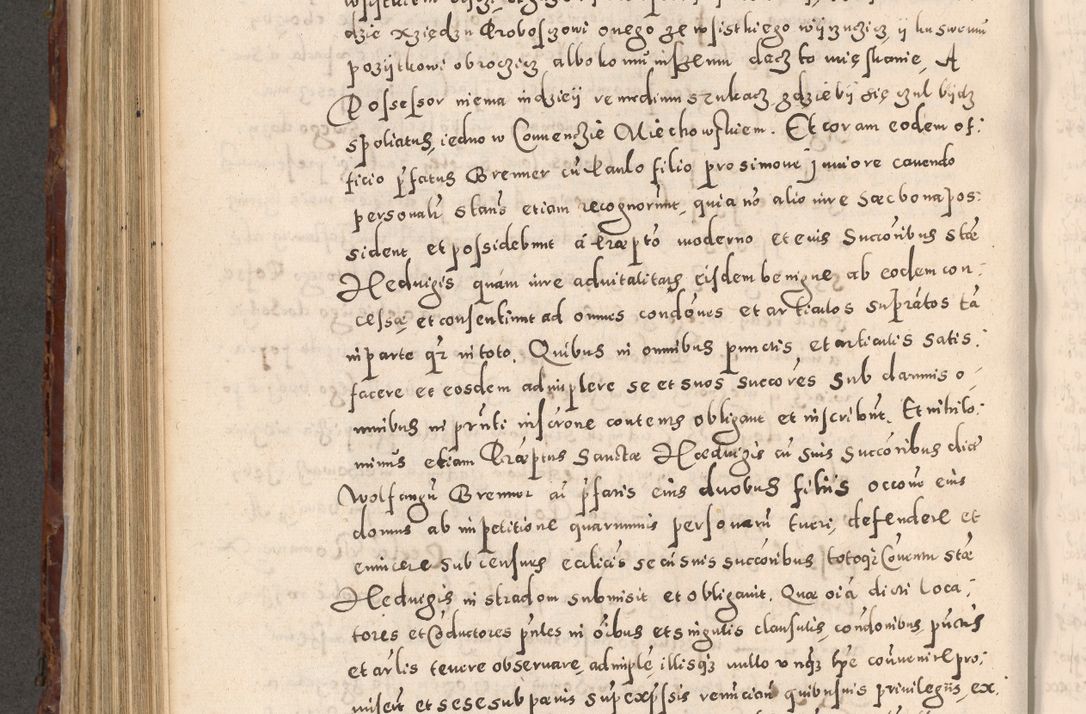 dzie Xziędzu Proboszowi onego ze wsistkiego wÿrzucicz, ÿ ku swemu
pozÿtkowi obroczicz albo komu inszemu dacz to mięskanie, A
Possessor niema indzieÿ remedium szukacz, gdzie bÿ się czul bÿdz
spoliatus, iedno w Conuenczie Miechowskiem. Et coram eodem of:
ficio p̃fatus Brenner cũ Paulo filio pro simone Juniore cauendo
personalr̃ stans etiam recognorunt, quia nõ alio iure Sacc bona pos:
sident et possidebunt à Praepto moderno et eius Succoribus Stae
Heduigis quàm iure aduitalitatis eisdem benigne ab eodem con:
cessae et consentiunt ad omnes condönes et articulos supratos tã
in parte qz in toto. Quibus in omnibus punctis et articulis satis:
facere et eosdem adimplere se et suos succores sub damnis o:
mnibus in pr̃nti inscrone contentis obligant et inscribunt. Et nihilo:
minus etiam Praeptus Sanctae Haeduigis cũ suis Succoribus dictũ
Wolfangũ Brenner cũ p̃fatis eius duobus filiis occone eius
domus ab impetitione quarumuis personarũ tueri, defendere et
euincere sub censuris eccliacis se cũ suis succoribus totoqz Couentu Stae
Heduigis in stradom submisit et obligauit. Quae oia dicti Loca:
tores et Coductores p̃ntes in oibus et singulis clausulis, condonibus, punctis
et arlis tenere obseruare, adimple, illisqz nullo unqz tpe couenire pro:
miserũt et sese sub paenis supexpssis renuncian̄ quibusuis priuilegiis, ex: